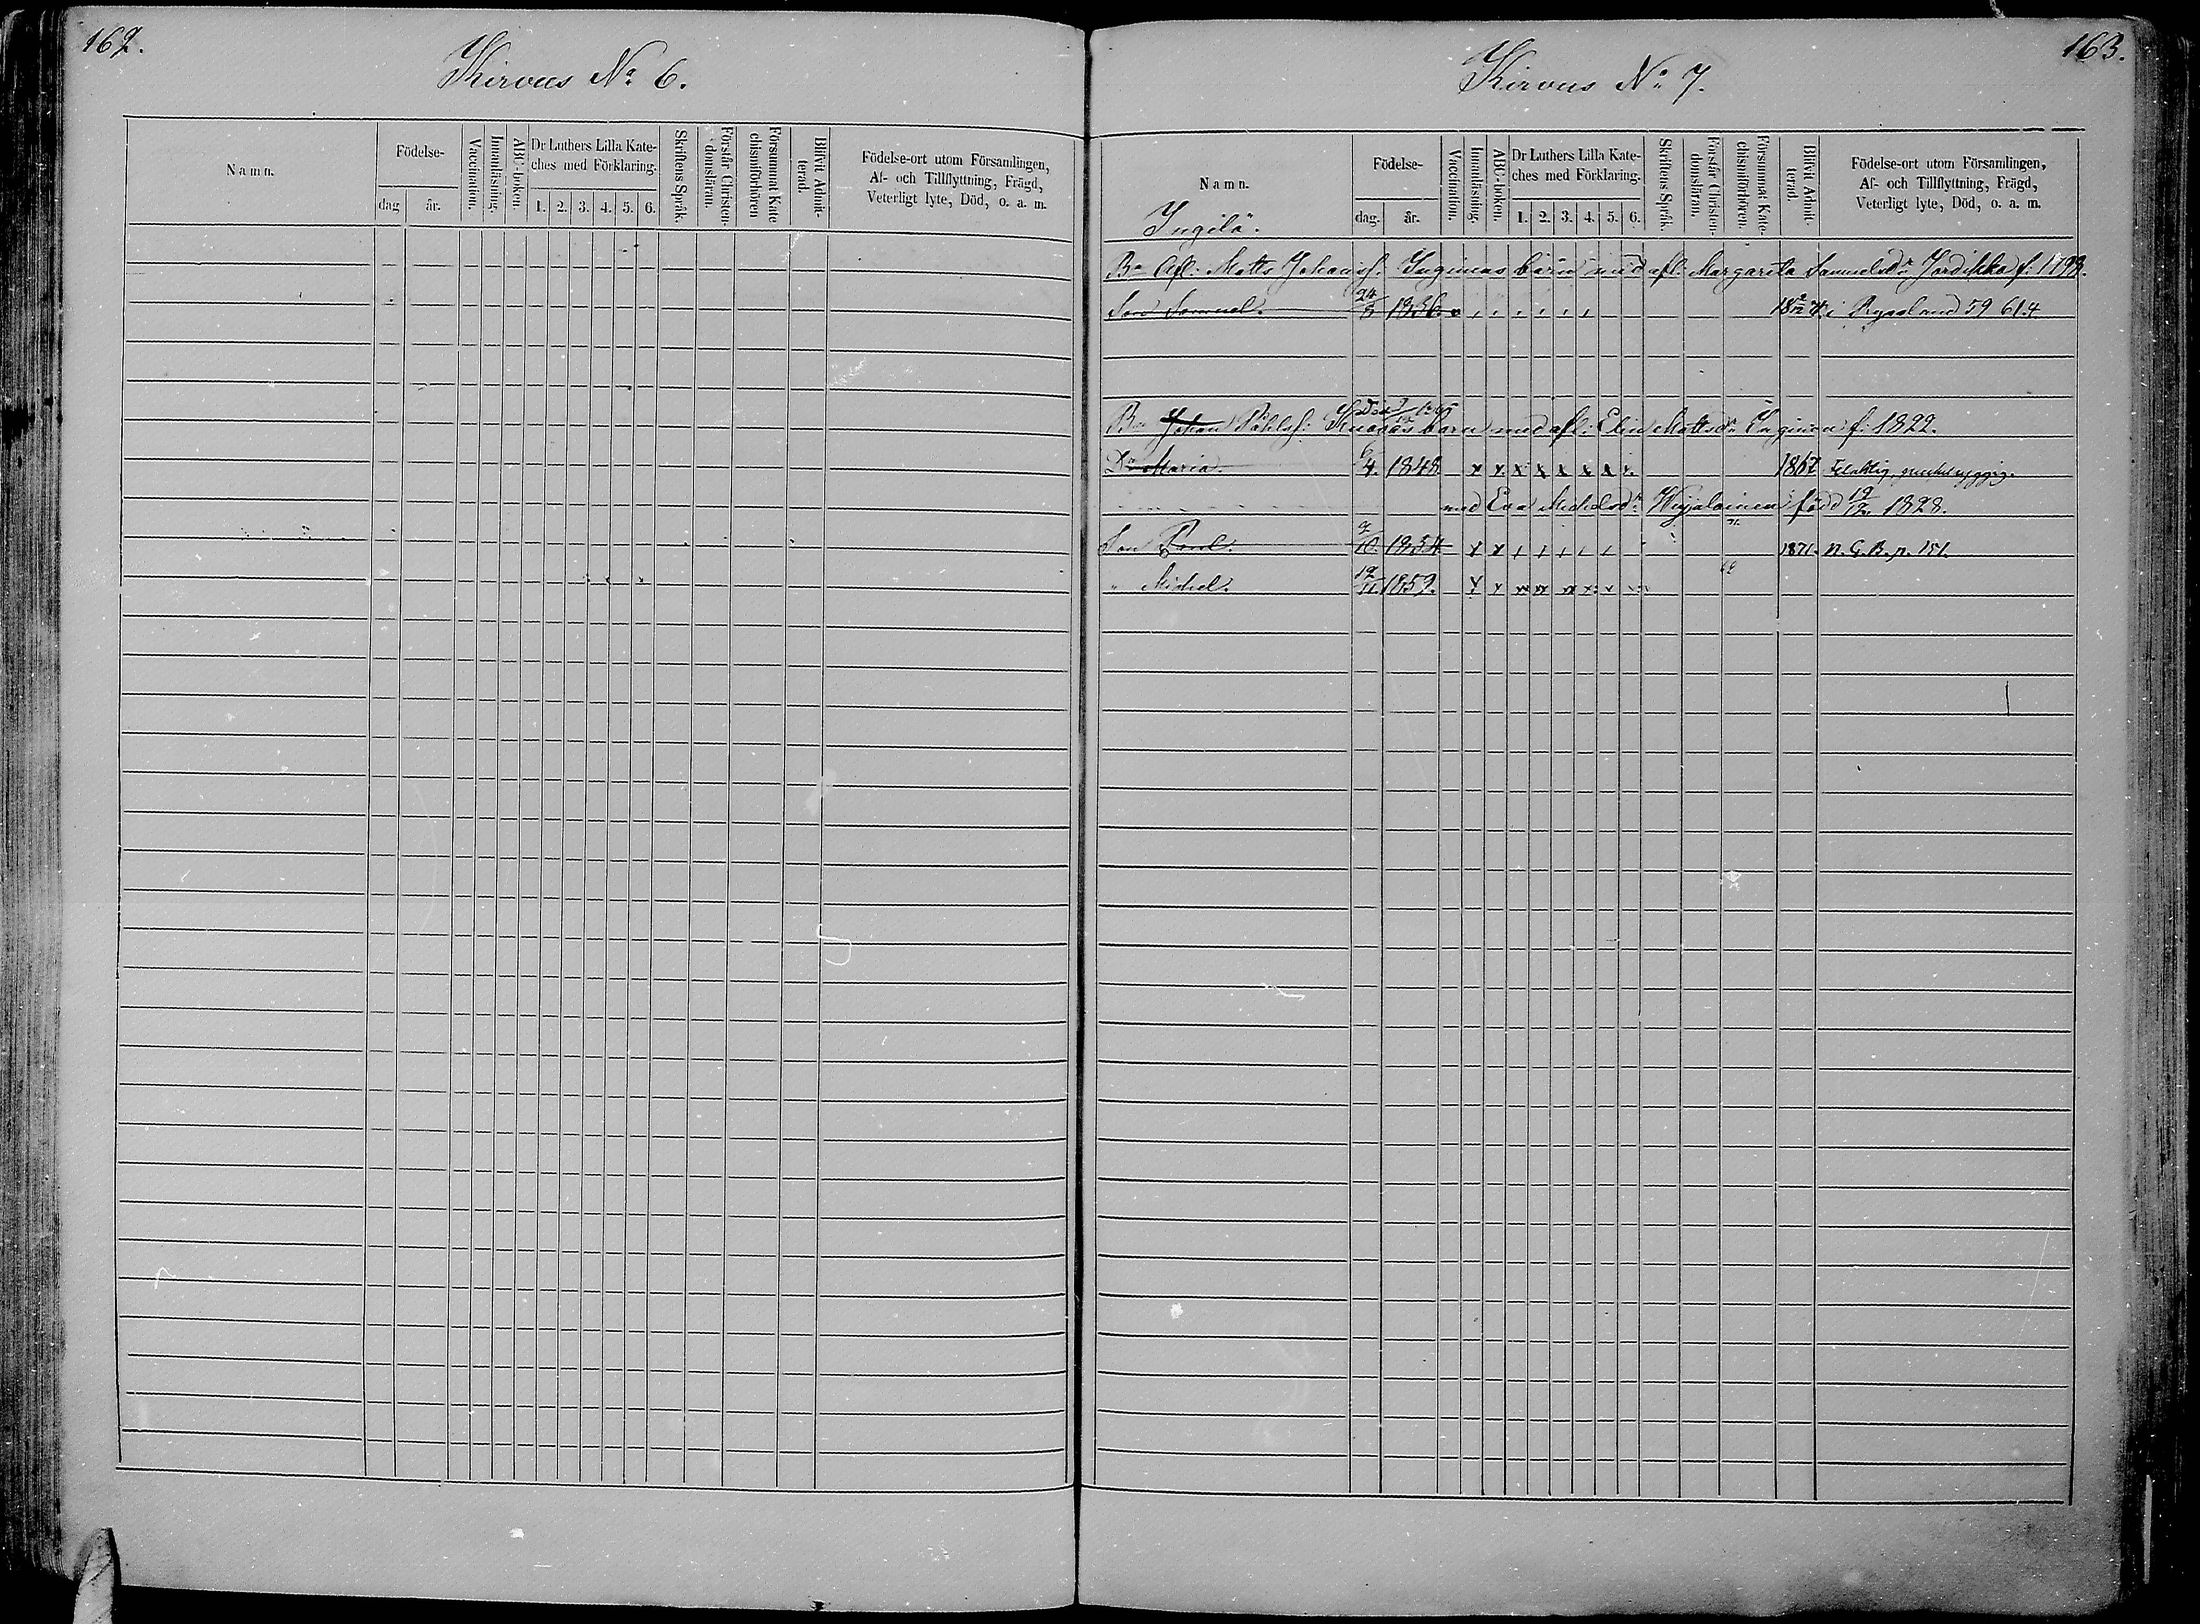 162.
Kirvus No 6.
Namn.
Födelse-
dag
år.
Vaccination.
Innanläsning.
ABC-boken
Dr Luthers Lilla Kate-
ches med Förklaring.
1. 2. 3. 4. 5. 6.
Skriftens Språk.
Förstår Christen-
domsläran.
Försummat Kate
chismiförhören
Blifvit Admit-
terad.
Födelse-ort utom Församlingen,
Af- och Tillflyttning, Frägd,
Veterligt lyte, Död, o. a. m.
163.
Kirvus No 7.
Namn.
Ingilä.
Födelse-
dag.
år.
Vaccination.
Innanläsning.
ABC-boken.
Dr Luthers Lilla Kate-
ches med Förklaring.
1. 2. 3. 4. 5. 6.
Skriftens Språk.
Förstår Christen-
domsläran.
Försummat Kate-
chismiförhören.
Blifvit Admit-
terad.
Födelse-ort utom Församlingen,
Af- och Tillflyttning, Frägd,
Veterligt lyte, Död, o. a. m.
Bn Afl: Matts Johansf: Inginens barn med afl: Margareta Samuelsdr Jordikka f: 1798.
Son Samuel. 24/8 1836. i Ryssland 59 61.4
Bn Johan Påhlsf: barn med afl: Elin Mattsdr Inginen f: 1822.
Dr Maria. 6/4. 1848 x x x x x x x 1867
med Eva Michelsdr född 1828.
71.
Son Paul. 2/10. 1854 x x 1871. n. C. B. p. 151.
69
" Michel. 12/11. 1859.